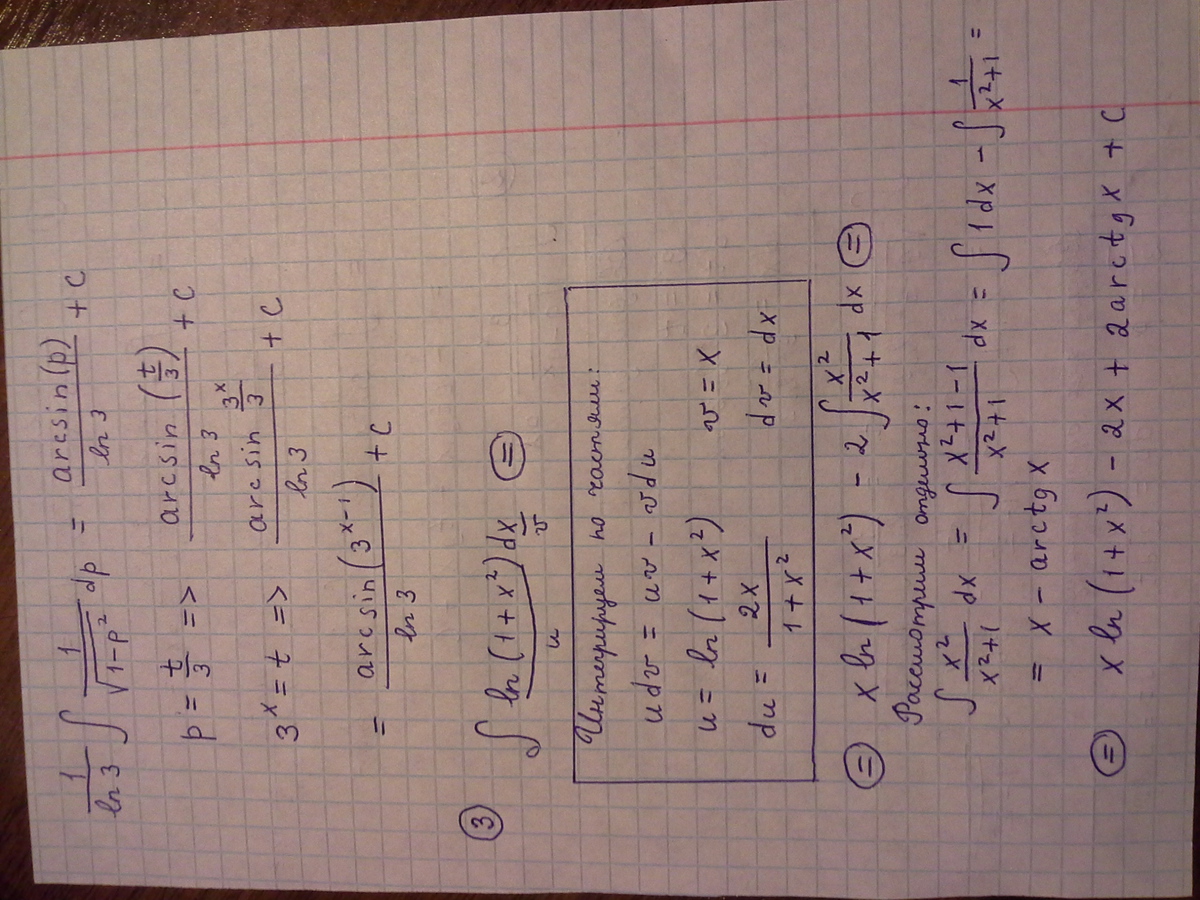 1/ln 3 ∫ 1/√(1-p²) dp = arcsin(p)/ln 3 + C
p = t/3 => arcsin(t/3)/ln 3 + C
3ˣ = t => arcsin 3ˣ/3 / ln 3 + C
= arcsin(3ˣ⁻¹)/ln 3 + C
③ ∫ ln(1+x²) dx ⊜
u v
Интегрируем по частям:
udv = uv - vdu
u = ln(1+x²) v = x
du = 2x/(1+x²) dv = dx
⊜ x ln(1+x²) - 2 ∫ x²/(x²+1) dx ⊜
Рассмотрим отдельно:
∫ x²/(x²+1) dx = ∫ (x²+1-1)/(x²+1) dx = ∫ 1 dx - ∫ 1/(x²+1) =
= x - arctg x
⊜ x ln(1+x²) - 2x + 2arctg x + C